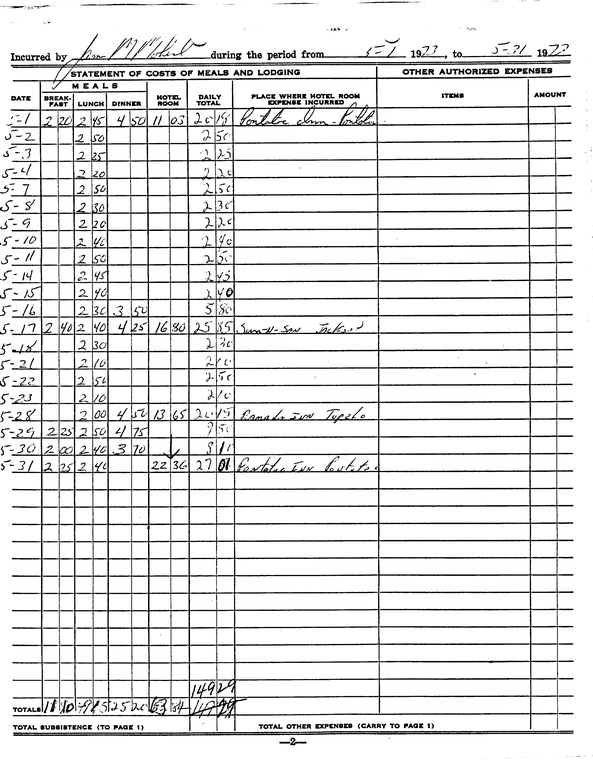 Incurred by Jim during the period from 5-1 1973, to 5-31 1973
STATEMENT OF COSTS OF MEALS AND LODGING OTHER AUTHORIZED EXPENSES
MEALS
DATE BREAK-FAST LUNCH DINNER HOTEL ROOM DAILY TOTAL PLACE WHERE HOTEL ROOM EXPENSE INCURRED ITEMS AMOUNT
5-1 2 20 2 45 4 50 11 03 20 18 Pontotoc Inn - Pontotoc
5-2 2 50 2 50
5-3 2 25 2 25
5-4 2 20 2 20
5-7 2 50 2 50
5-8 2 30 2 30
5-9 2 20 2 20
5-10 2 40 2 40
5-11 2 50 2 50
5-14 2 45 2 45
5-15 2 40 2 40
5-16 2 30 3 50 5 80
5-17 2 40 2 40 4 25 16 80 25 85 Sun-N-San Jackson
5-18 2 30 2 30
5-21 2 10 2 10
5-22 2 50 2 50
5-23 2 10 2 10
5-28 2 00 4 50 13 65 20 15 Ramada Inn Tupelo
5-29 2 25 2 50 4 75 9 50
5-30 2 00 2 40 3 70 8 10
5-31 2 25 2 40 22 36 27 01 Pontotoc Inn Pontotoc
149 29
TOTALS 11 10 25 20 63 84
TOTAL SUBSISTENCE (TO PAGE 1) TOTAL OTHER EXPENSES (CARRY TO PAGE 1)
—2—